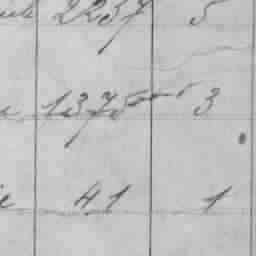 2237 5
1375 3
41 1